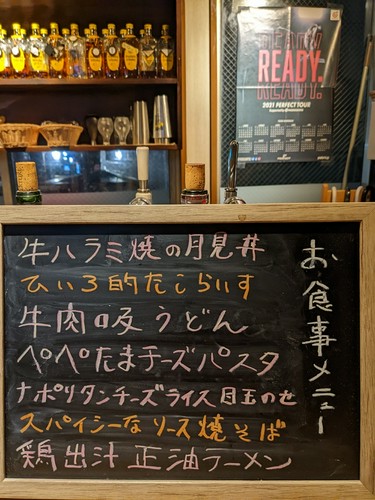 READY.
READY.
READY.
2021 PERFECT TOUR
お食事メニュー
牛ハラミ焼の月見丼
ひぃろ的たこらいす
牛肉吸うどん
ペペたまチーズパスタ
ナポリタンチーズライス目玉のせ
スパイシーなソース焼そば
鶏出汁正油ラーメン